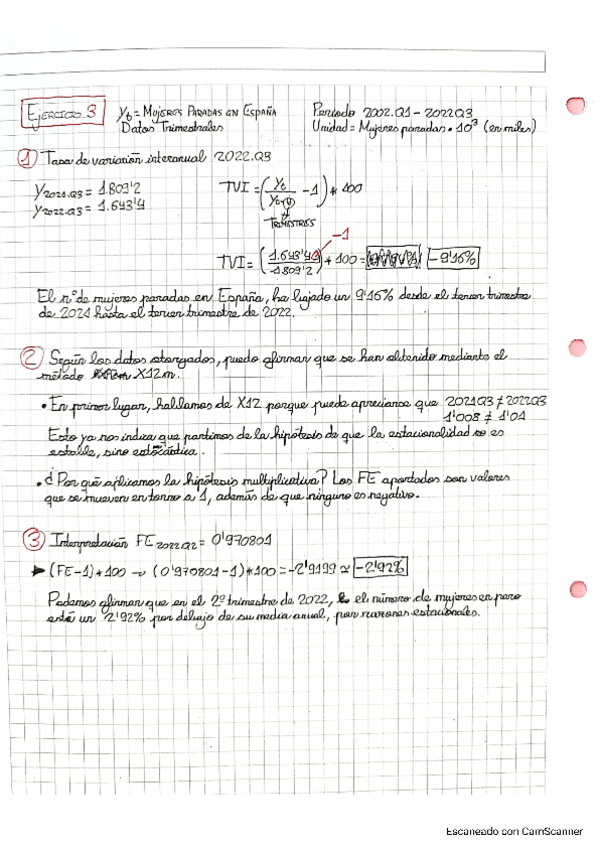 Ejercicio 3
yt = Mujeres Paradas en España
Datos Trimestrales
Período 2002.Q1 - 2022Q3
Unidad = Mujeres paradas • 10³ (en miles)
① Tasa de variación interanual 2022.Q3
Y2021.Q3 = 1.809'2
Y2022.Q3 = 1.643'4
TVI = (yt / yt-4 - 1) * 100
TRIMESTRES
-1
TVI = (1.643'4 / 1809'2) * 100 = -9'16%
El nº de mujeres paradas en España, ha bajado un 9'16% desde el tercer trimestre
de 2021 hasta el tercer trimestre de 2022.
② Según los datos otorgados, puedo afirmar que se han obtenido mediante el
método X12m.
• En primer lugar, hablamos de X12 porque puede apreciarse que 2021Q3 ≠ 2022Q3
1'008 ≠ 1'01
Esto ya nos indica que partimos de la hipótesis de que la estacionalidad no es
estable, sino estocástica.
• ¿Por qué aplicamos la hipótesis multiplicativa? Los FE aportados son valores
que se mueven en torno a 1, además de que ninguno es negativo.
③ Interpretación FE2022Q2 = 0'970801
(FE-1)*100 → (0'970801-1)*100 = -2'9199 ≃ -2'92%
Podemos afirmar que en el 2º trimestre de 2022, el número de mujeres en paro
está un 2'92% por debajo de su media anual, por razones estacionales.
Escaneado con CamScanner